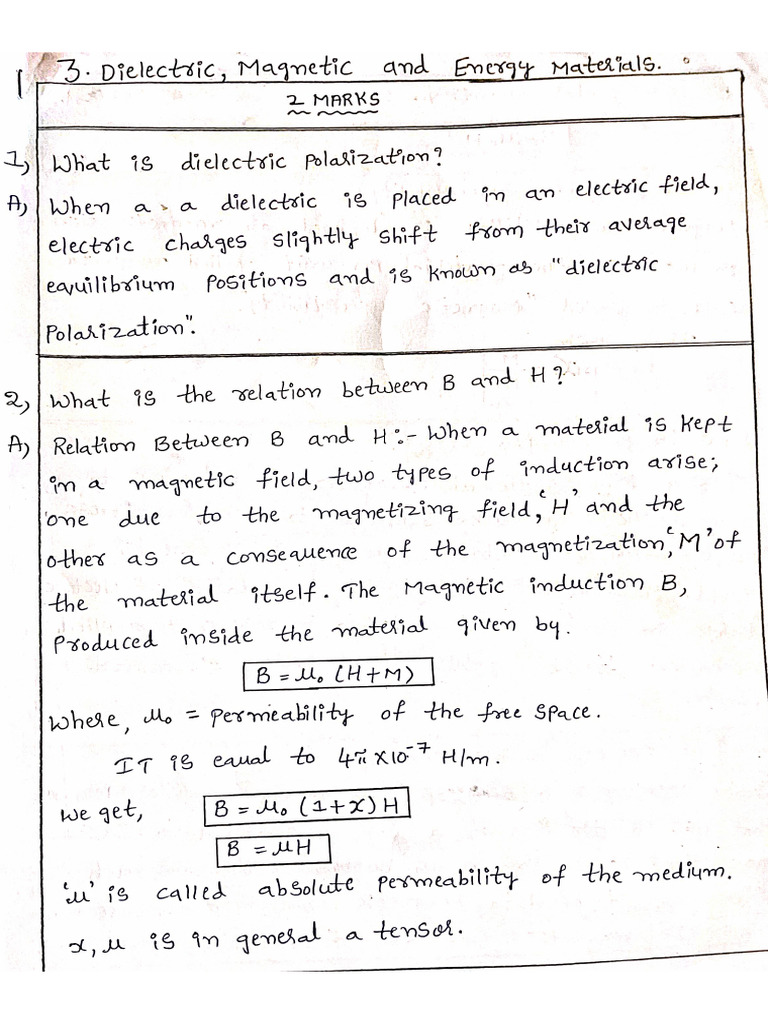 3. Dielectric, Magnetic and Energy Materials.
2 MARKS
1) What is dielectric polarization?
A) When a a dielectric is placed in an electric field,
electric charges slightly shift from their average
equilibrium positions and is known as "dielectric
polarization".
2) What is the relation between B and H?
A) Relation Between B and H:- When a material is kept
in a magnetic field, two types of induction arise;
one due to the magnetizing field,'H' and the
other as a consequence of the magnetization,'M' of
the material itself. The Magnetic induction B,
produced inside the material given by.
B = μ₀ (H+M)
Where, μ₀ = permeability of the free space.
IT is equal to 4π×10⁻⁷ H/m.
We get, B = μ₀ (1+x) H
B = μH
'μ' is called absolute permeability of the medium.
x, μ is in general a tensor.